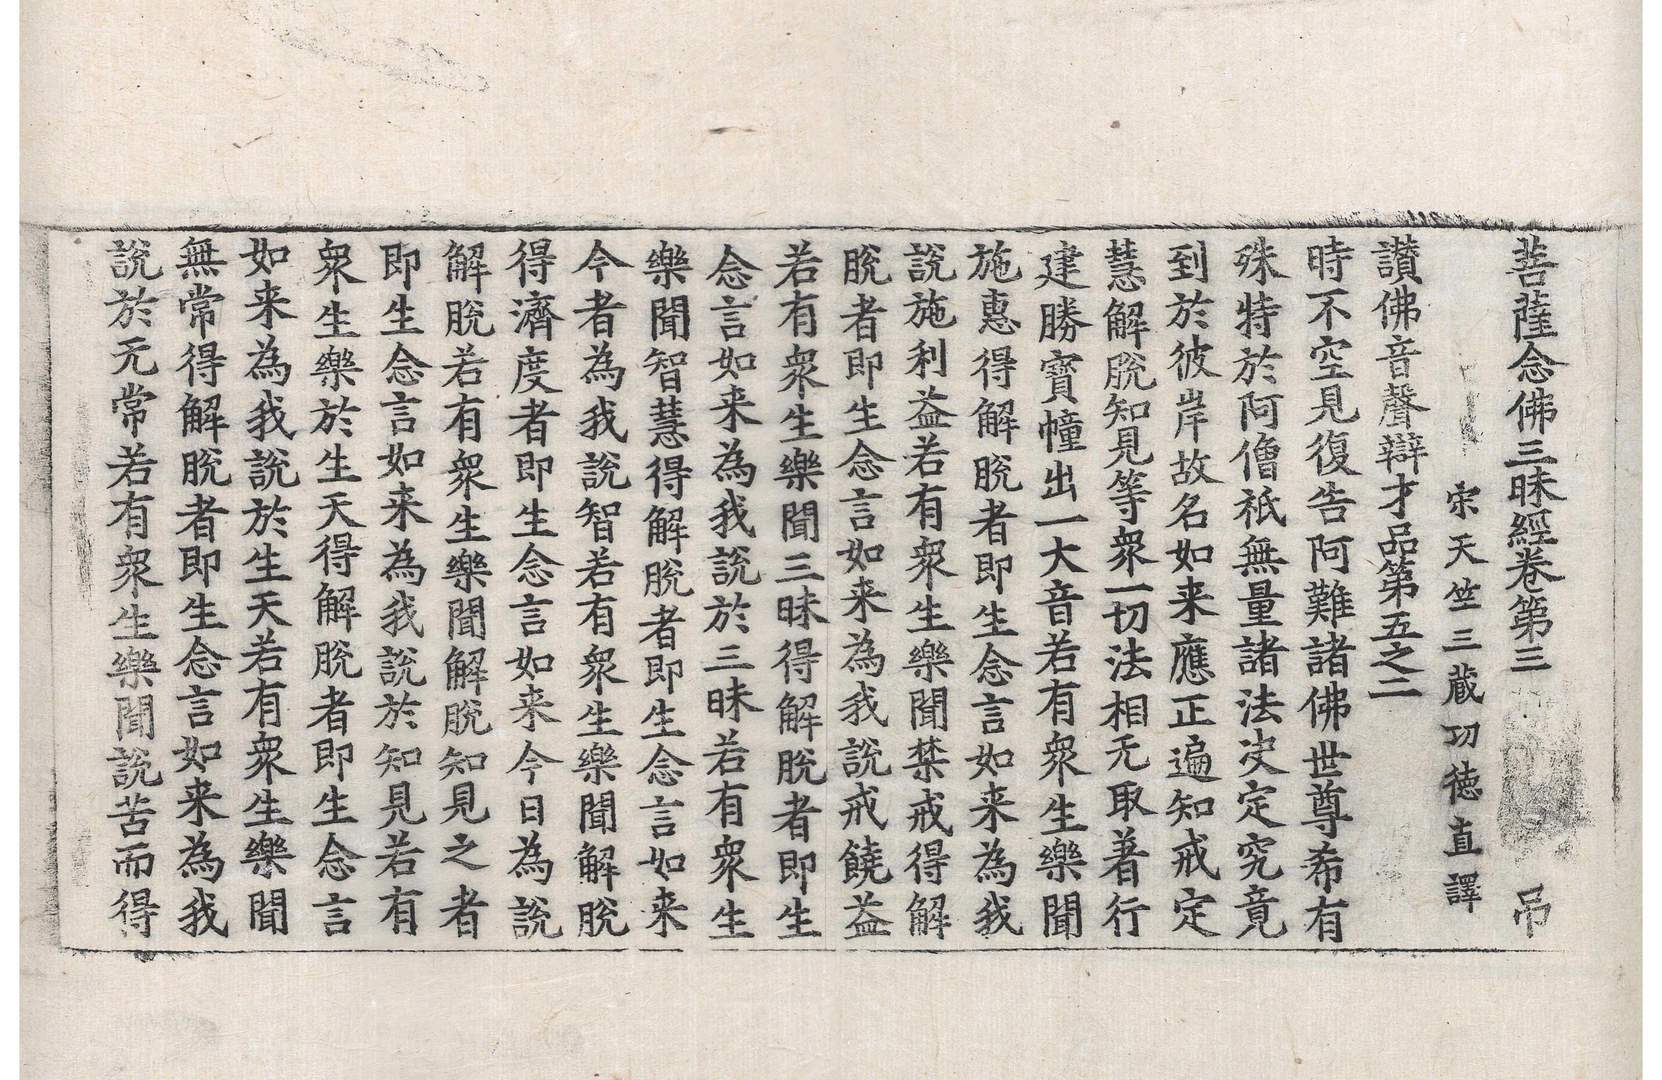 菩薩念佛三昧經卷第三 吊
宋天竺三藏功德直譯
讃佛音聲辯才品第五之二
時不空見復告阿難諸佛世尊希有
殊特於阿僧祇無量諸法决定究竟
到於彼岸故名如来應正遍知戒定
慧解脫知見等衆一切法相无取著行
建勝寶幢出一大音若有衆生樂聞
施惠得解脫者即生念言如来為我
說施利益若有衆生樂聞禁戒得解
脫者即生念言如来為我說戒饒益
若有衆生樂聞三昧得解脫者即生
念言如来為我說於三昧若有衆生
樂聞智慧得解脫者即生念言如来
今者為我說智若有衆生樂聞解脫
得濟度者即生念言如来今日為說
解脫若有衆生樂聞解脫知見之者
即生念言如来為我說於知見若有
衆生樂於生天得解脫者即生念言
如来為我說於生天若有衆生樂聞
無常得解脫者即生念言如来為我
說於无常若有衆生樂聞說苦而得